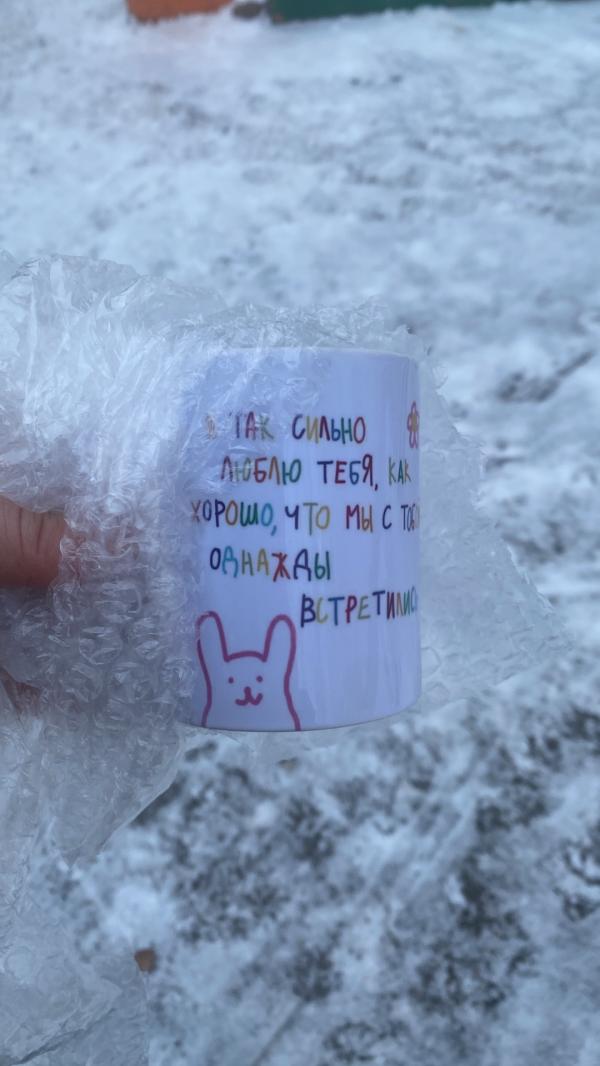 Я ТАК СИЛЬНО
ЛЮБЛЮ ТЕБЯ, КАК
ХОРОШО, ЧТО МЫ С ТОБОЙ
ОДНАЖДЫ
ВСТРЕТИЛИСЬ